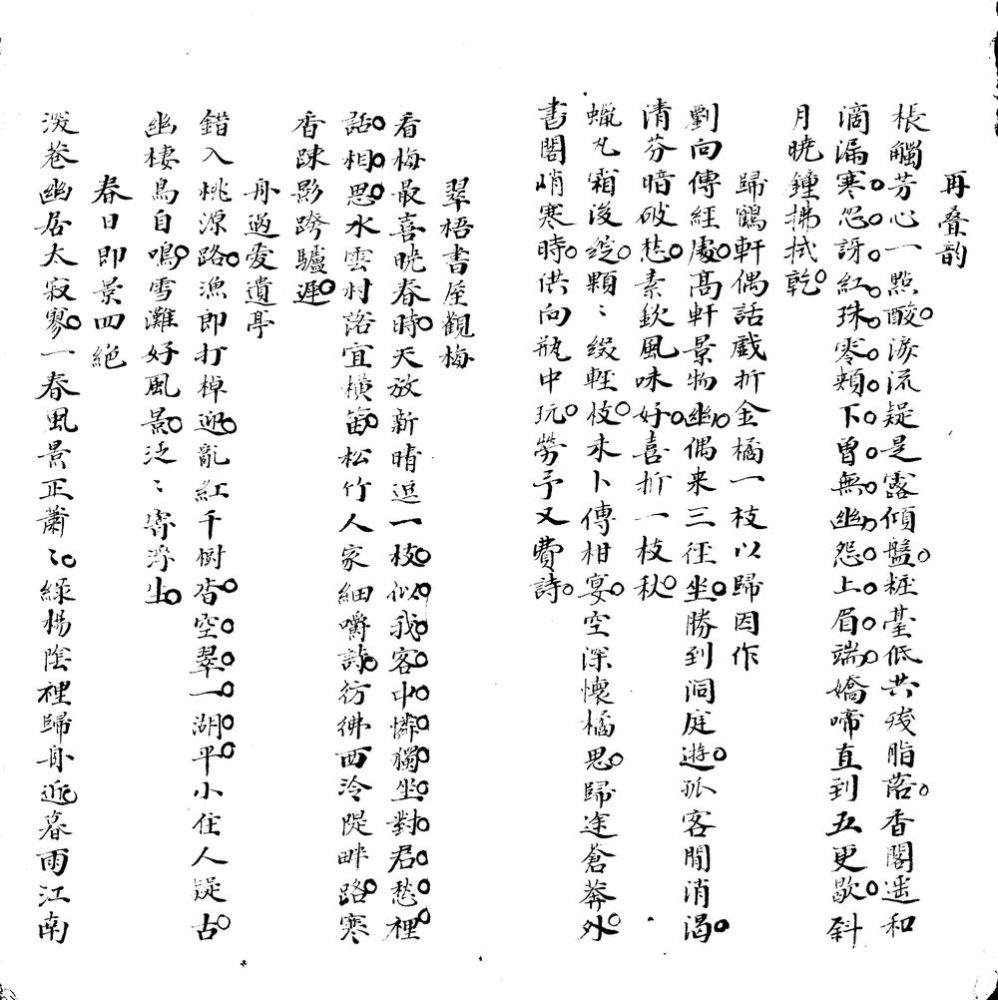 再叠韵
棖觸芳心一點酸涕流疑是露傾盤粧臺低共殘脂落香閣遥和
滴漏寒忽訝紅珠零頰下曾無幽怨上眉端嬌啼直到五更歇斜
月曉鐘拂拭乾
歸鶴軒偶話戲折金橘一枝以歸因作
劉向傳經處髙軒景物幽偶来三徑坐勝到洞庭遊孤客閒消渴
清芬暗破愁素欽風味好喜折一枝秋
蠟丸霜後綻顆〻綴輕枝未卜傳柑宴空深懷橘思歸途蒼莽外
書閣峭寒時供向瓶中玩勞予又費詩
翠梧書屋觀梅
看梅最喜曉春時天放新晴逗一枝似我客中憐獨坐對君愁裡
話相思水雲村落宜橫笛松竹人家細嚼詩彷彿西泠隄畔路寒
香踈影跨驢遲
舟過愛遺亭
錯入桃源路漁郎打棹迎亂紅千樹杳空翠一湖平小住人疑古
幽棲鳥自鳴雪灘好風景泛〻寄浮生
春日即景四絕
深巷幽居太寂寥一春風景正蕭〻綠楊陰裡歸舟近暮雨江南